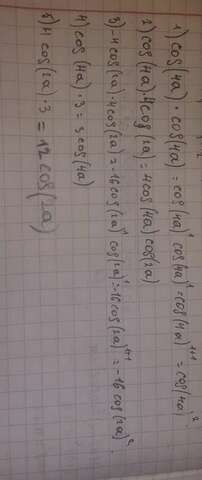 1) cos(4a) · cos(4a) = cos(4a)¹ cos(4a)¹ = cos(4a)¹⁺¹ = cos(4a)²
2) cos(4a) · 4cos(2a) = 4cos(4a) cos(2a)
3) -4cos(2a) · 4cos(2a) = -16cos(2a)¹ cos(2a)¹ = -16cos(2a)¹⁺¹ = -16cos(2a)².
4) cos(4a) · 3 = 3cos(4a)
5) 4 cos(2a) · 3 = 12 cos(2a)